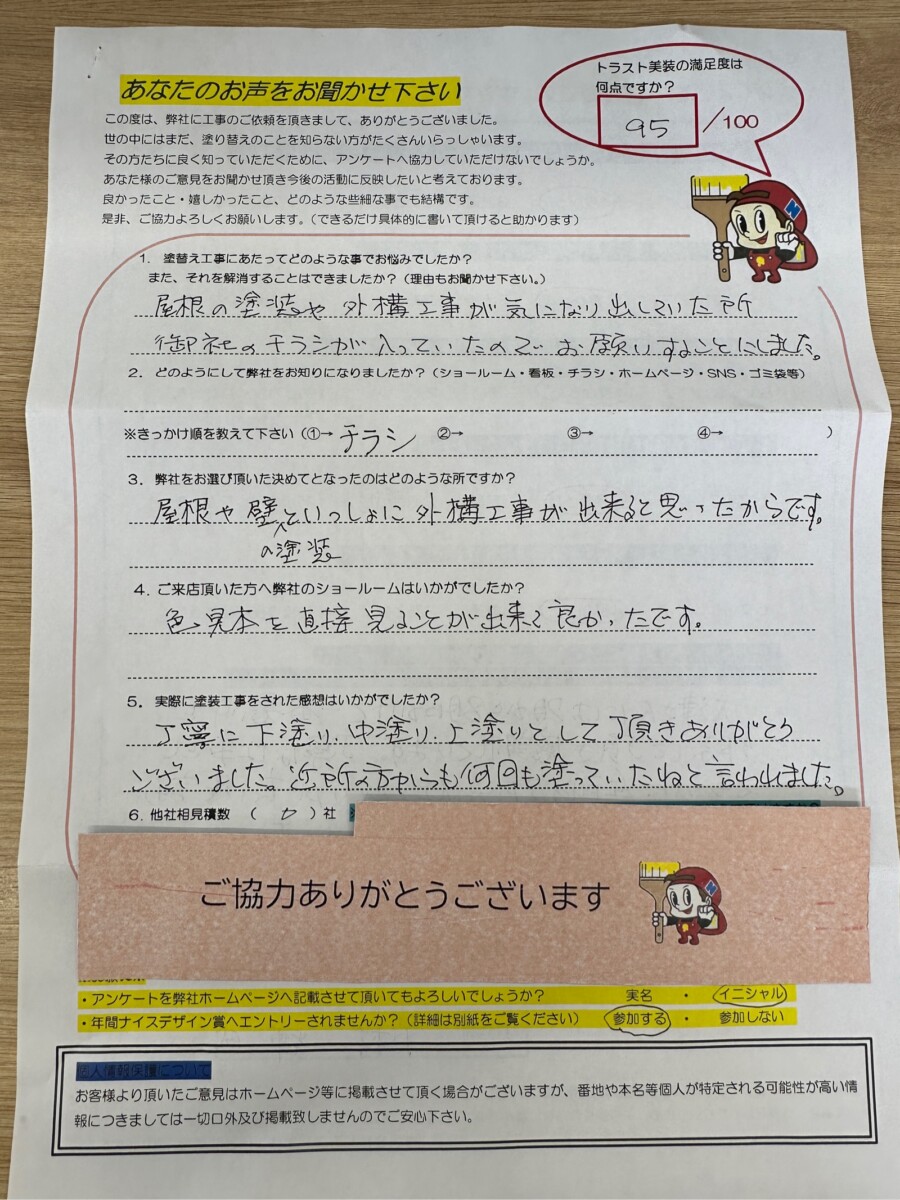 あなたのお声をお聞かせ下さい
トラスト美装の満足度は
何点ですか?
95 /100
この度は、弊社に工事のご依頼を頂きまして、ありがとうございました。
世の中にはまだ、塗り替えのことを知らない方がたくさんいらっしゃいます。
その方たちに良く知っていただくために、アンケートへ協力していただけないでしょうか。
あなた様のご意見をお聞かせ頂き今後の活動に反映したいと考えております。
良かったこと・嬉しかったこと、どのような些細な事でも結構です。
是非、ご協力よろしくお願いします。(できるだけ具体的に書いて頂けると助かります)
N
1. 塗替え工事にあたってどのような事でお悩みでしたか?
また、それを解消することはできましたか?(理由もお聞かせ下さい。)
屋根の塗装や外構工事が気になり出していた所
御社のチラシが入っていたのでお願いすることにしました。
2. どのようにして弊社をお知りになりましたか?(ショールーム・看板・チラシ・ホームページ・SNS・ゴミ袋等)
※きっかけ順を教えて下さい(①→ チラシ ②→ ③→ ④→ )
3. 弊社をお選び頂いた決めてとなったのはどのような所ですか?
屋根や壁といっしょに外構工事が出来ると思ったからです。
の塗装
4. ご来店頂いた方へ弊社のショールームはいかがでしたか?
色見本を直接見ることが出来て良かったです。
5. 実際に塗装工事をされた感想はいかがでしたか?
丁寧に下塗り、中塗り、上塗りとして頂きありがとう
ございました。近所の方からも何回も塗っていたねと言われました。
6. 他社相見積数 ( )社
ご協力ありがとうございます
N
・アンケートを弊社ホームページへ記載させて頂いてもよろしいでしょうか? 実名 ・ イニシャル
・年間ナイスデザイン賞へエントリーされませんか?(詳細は別紙をご覧ください) 参加する ・ 参加しない
個人情報保護について
お客様より頂いたご意見はホームページ等に掲載させて頂く場合がございますが、番地や本名等個人が特定される可能性が高い情
報につきましては一切口外及び掲載致しませんのでご安心下さい。